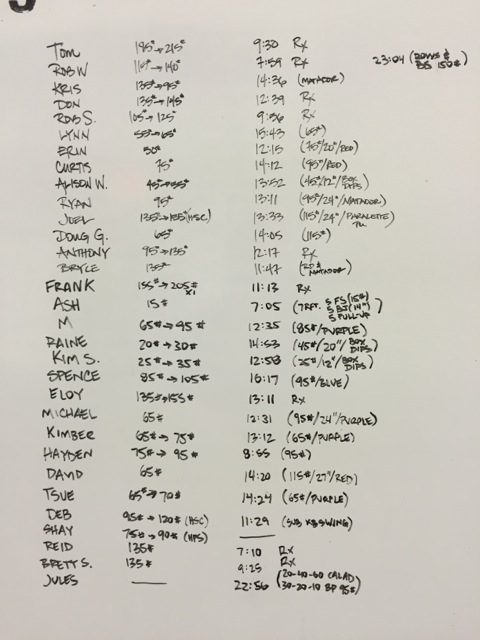 TOM 195# → 215# 9:30 Rx
ROB W 115# → 140# 7:59 Rx 23:04 (ROWS & BS 150#)
KRIS 135# → 95# 14:36 (MATADOR)
DON 135# → 145# 12:39 Rx
ROB S. 105 → 125# 9:56 Rx
LYNN 55# → 65# 15:43 (65#)
ERIN 50# 12:15 (75#/20"/RED)
CURTIS 75# 14:12 (95#/RED)
ALISON W. 45# → 55# 13:52 (45#/12"/BOX DIPS)
RYAN 95# 13:11 (95#/24"/MATADOR)
JOEL 135# → 185# (HSC) 13:33 (115#/24"/PARALETTE PU)
DOUG G. 65# 14:05 (115#)
ANTHONY 95# → 135# 12:17 Rx
BRYCE 135# 11:47 (MATADOR)
FRANK 155# → 205# x1 11:13 Rx
ASH 15# 7:05 (7RFT. 5 FS (15#) 5 BJ (14") 5 PULL-UP)
M 65# → 95# 12:35 (85#/PURPLE)
RAINE 20# → 30# 14:53 (45#/20"/BOX DIPS)
KIM S. 25# → 35# 12:58 (25#/12"/BOX DIPS)
SPENCE 85# → 105# 16:17 (95#/BLUE)
ELOY 135# → 155# 13:11 Rx
MICHAEL 65# 12:31 (95#/24"/PURPLE)
KIMBER 65# → 75# 13:12 (65#/PURPLE)
HAYDEN 75# → 95# 8:55 (95#)
DAVID 65# 14:20 (115#/27"/RED)
TSUE 65# → 70# 14:24 (65#/PURPLE)
DEB 95# → 120# (HSC) 11:29 (SUB KBSWING)
SHAY 75# → 90# (HPS) —
REID 135# 7:10 Rx
BRETT S. 135# 9:25 Rx
JULES — 22:56 (20-40-60 CALAD 30-20-10 BP 95#)